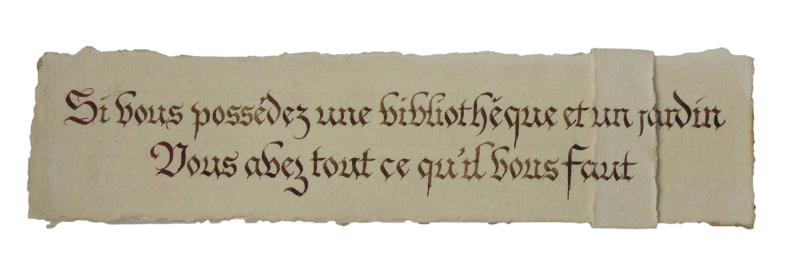 Si vous possédez une bibliothèque et un jardin
Vous avez tout ce qu'il vous faut